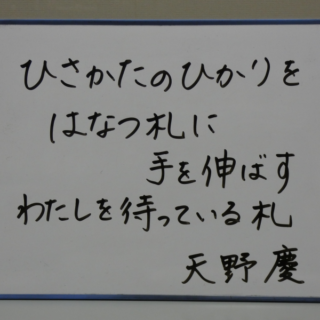 ひさかたのひかりを
はなつ札に
手を伸ばす
わたしを待っている札
天野慶